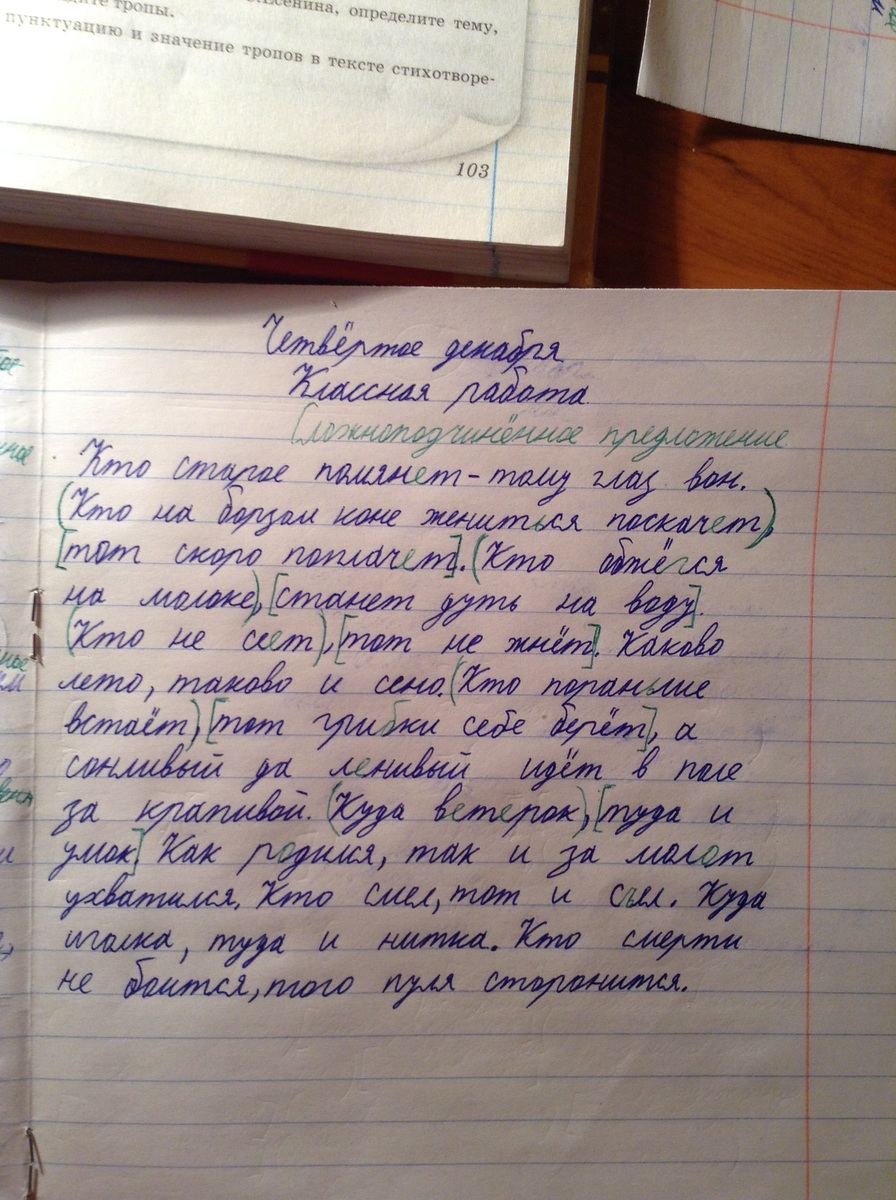 тропы.
Есенина, определите тему,
пунктуацию и значение тропов в тексте стихотворе-
103
Четвёртое декабря
Классная работа
Сложноподчинённое предложение
Кто старое помянет - тому глаз вон.
(Кто на борзом коне жениться поскачет),
[тот скоро поплачет]. (Кто обжёгся
на молоке), [станет дуть на воду].
(Кто не сеет), [тот не жнёт]. Каково
лето, таково и сено. (Кто пораньше
встаёт), [тот грибки себе берёт], а
сонливый да ленивый идёт в поле
за крапивой. (Куда ветерок), [туда и
умок] Как родился, так и за молот
ухватился. Кто смел, тот и съел. Куда
иголка, туда и нитка. Кто смерти
не боится, того пуля сторонится.